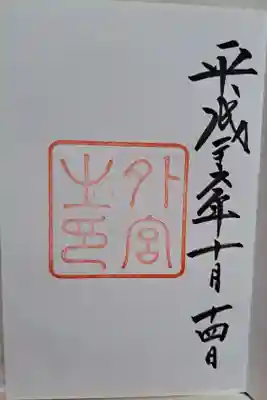 平成二十六年十月十四日
外宮
之印